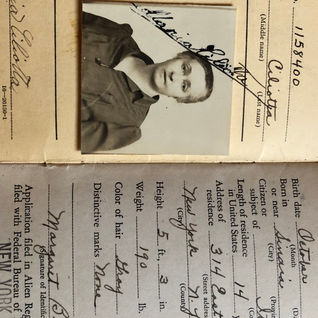 No. 1158400
Ciliotta
(Middle name) (Last name)
Maria Ciliotta
16—20150-1
Birth date October
(Month)
Born in
or near
(City) (Provinc
Citizen or
subject of
Length of residence
in United States 14 y
Address of
residence 314 East
(Street address
New York
(City) (County)
Height 5 ft., 3 in.
Weight 190 lb.
Color of hair Gray
Distinctive marks None
Margaret B
(Signature of Identific
Application filed in Alien Regi
filed with Federal Bureau of
NEW YORK